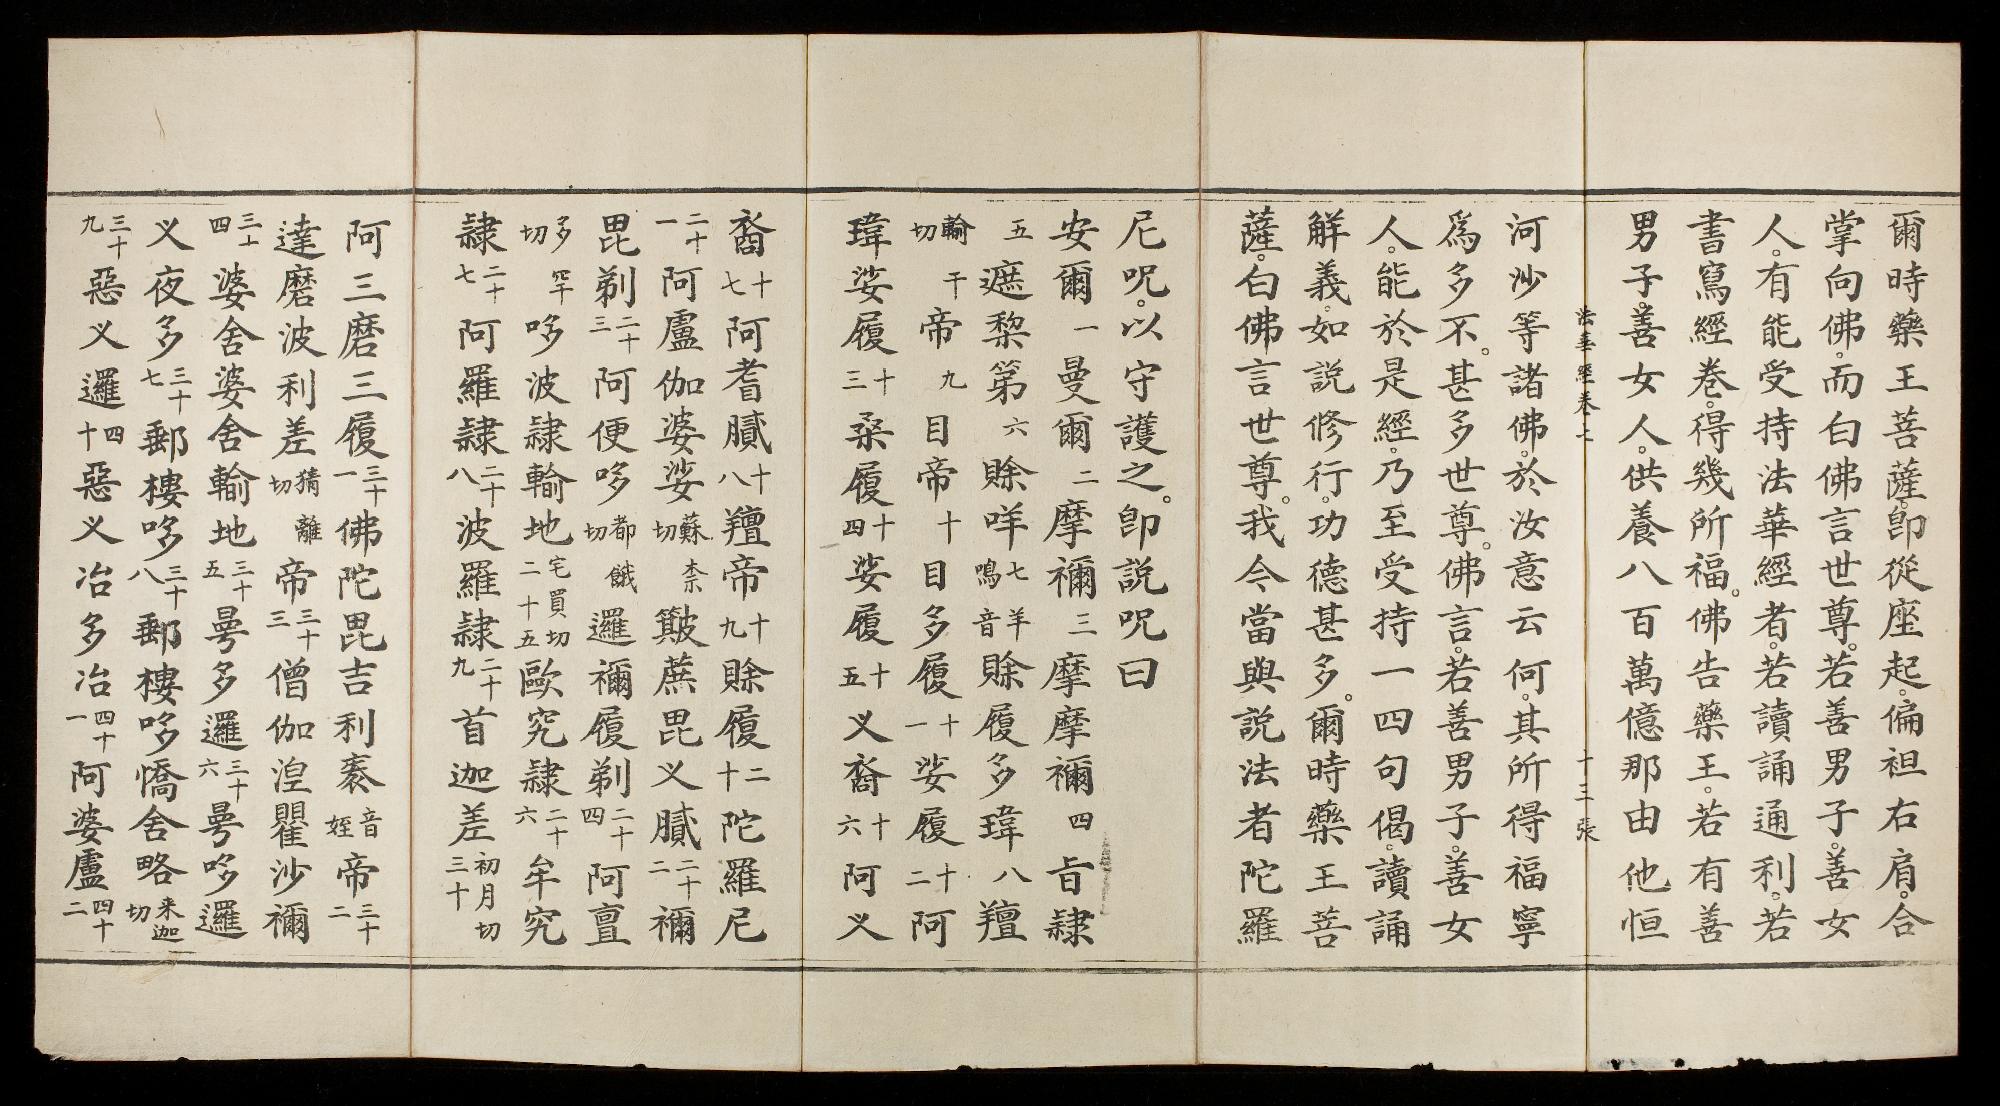 爾時藥王菩薩。即從座起。偏袒右肩。合
掌向佛。而白佛言世尊。若善男子。善女
人。有能受持法華經者。若讀誦通利。若
書寫經卷。得幾所福。佛告藥王。若有善
男子。善女人。供養八百萬億那由他恒
法華經卷七 十三張
河沙等諸佛。於汝意云何。其所得福寧
爲多不。甚多世尊。佛言。若善男子。善女
人。能於是經。乃至受持一四句偈。讀誦
解義。如說修行。功德甚多。爾時藥王菩
薩。白佛言世尊。我今當與說法者陀羅
尼呪。以守護之。卽說呪曰
安爾一曼爾二摩禰三摩摩禰四旨隸
五遮黎第六賒咩七羊鳴音賒履多瑋八羶
輸千切帝九目帝十目多履十一娑履十二阿
瑋娑履十三桑履十四娑履十五义裔十六阿义
裔十七阿耆膩十八羶帝十九賒履二十陀羅尼
二十一阿盧伽婆娑蘇柰切簸蔗毘义膩二十二禰
毘剃二十三阿便哆都餓切邏禰履剃二十四阿亶
哆波隸輸地宅買切二十五歐究隸二十六牟究
隸二十七阿羅隸二十八波羅隸二十九首迦差初月切三十
阿三磨三履三十一佛陀毘吉利袠音姪帝三十二
達磨波利差猜離切帝三十三僧伽涅瞿沙禰
三十四婆舍婆舍輸地三十五曼多邏三十六曼哆邏
义夜多三十七郵樓哆三十八郵樓哆憍舍略来迦切
三十九惡义邏四十惡义冶多冶四十一阿婆盧四十二